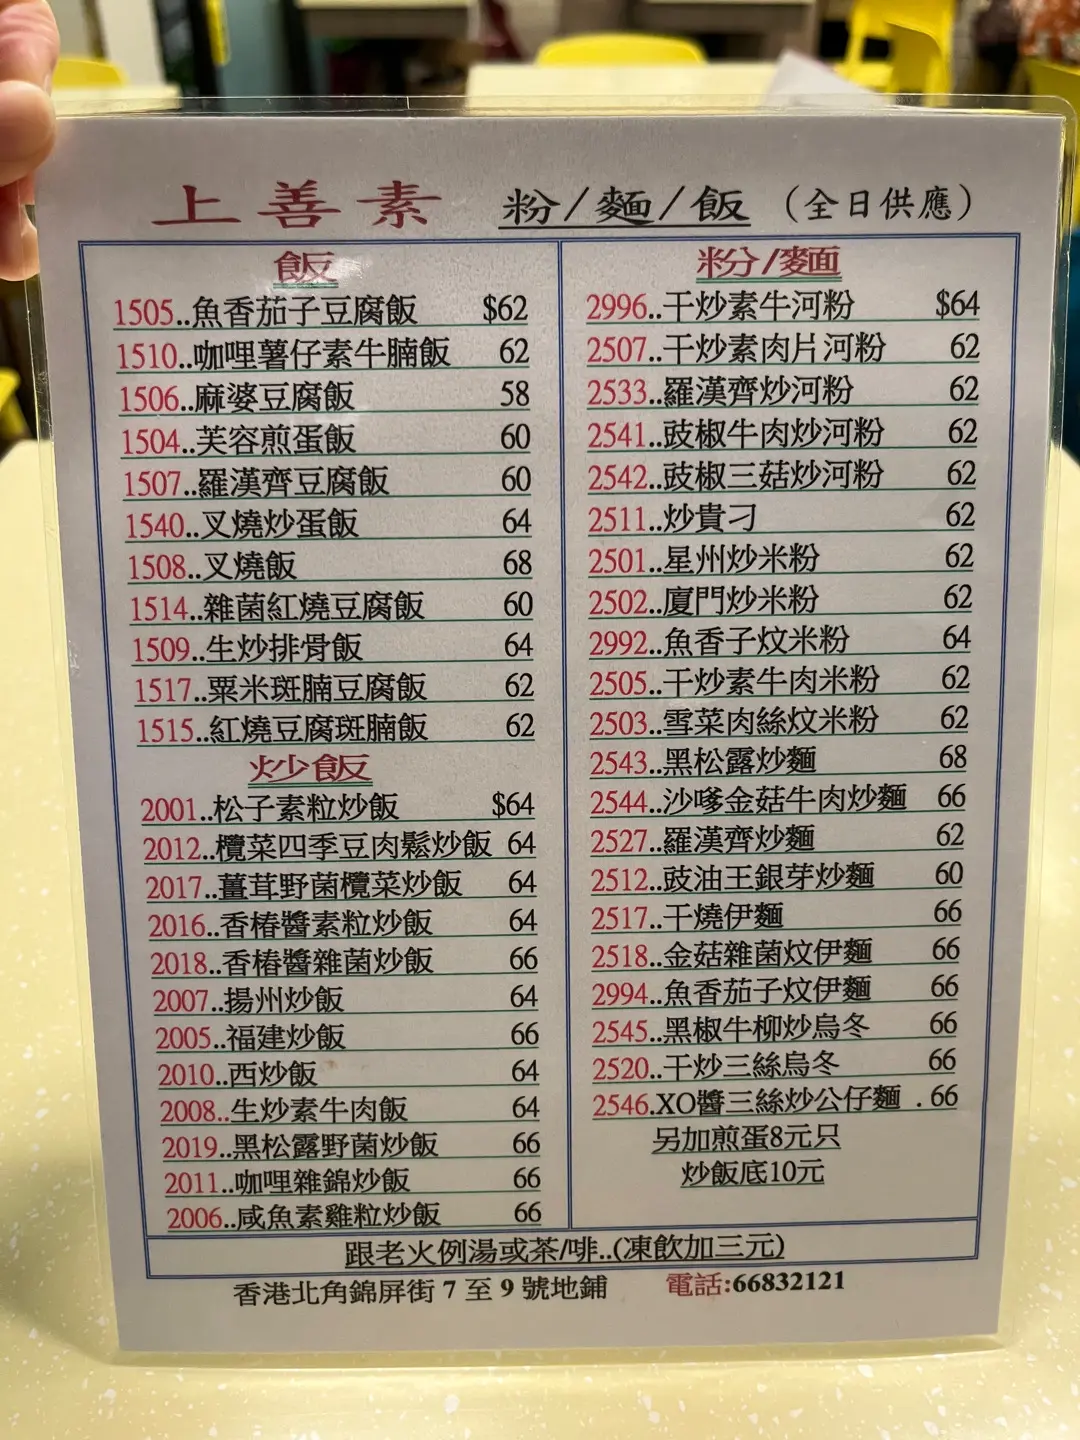 上善素 粉/麵/飯 (全日供應)
飯
1505..魚香茄子豆腐飯 $62
1510..咖哩薯仔素牛腩飯 62
1506..麻婆豆腐飯 58
1504..芙容煎蛋飯 60
1507..羅漢齊豆腐飯 60
1540..叉燒炒蛋飯 64
1508..叉燒飯 68
1514..雜菌紅燒豆腐飯 60
1509..生炒排骨飯 64
1517..粟米斑腩豆腐飯 62
1515..紅燒豆腐斑腩飯 62
炒飯
2001..松子素粒炒飯 $64
2012..欖菜四季豆肉鬆炒飯 64
2017..薑茸野菌欖菜炒飯 64
2016..香椿醬素粒炒飯 64
2018..香椿醬雜菌炒飯 66
2007..揚州炒飯 64
2005..福建炒飯 66
2010..西炒飯 64
2008..生炒素牛肉飯 64
2019..黑松露野菌炒飯 66
2011..咖哩雜錦炒飯 66
2006..咸魚素雞粒炒飯 66
粉/麵
2996..干炒素牛河粉 $64
2507..干炒素肉片河粉 62
2533..羅漢齊炒河粉 62
2541..豉椒牛肉炒河粉 62
2542..豉椒三菇炒河粉 62
2511..炒貴刁 62
2501..星州炒米粉 62
2502..廈門炒米粉 62
2992..魚香子炆米粉 64
2505..干炒素牛肉米粉 62
2503..雪菜肉絲炆米粉 62
2543..黑松露炒麵 68
2544..沙嗲金菇牛肉炒麵 66
2527..羅漢齊炒麵 62
2512..豉油王銀芽炒麵 60
2517..干燒伊麵 66
2518..金菇雜菌炆伊麵 66
2994..魚香茄子炆伊麵 66
2545..黑椒牛柳炒烏冬 66
2520..干炒三絲烏冬 66
2546.XO醬三絲炒公仔麵 . 66
另加煎蛋8元只
炒飯底10元
跟老火例湯或茶/啡..(凍飲加三元)
香港北角錦屏街 7 至 9 號地鋪 電話:66832121